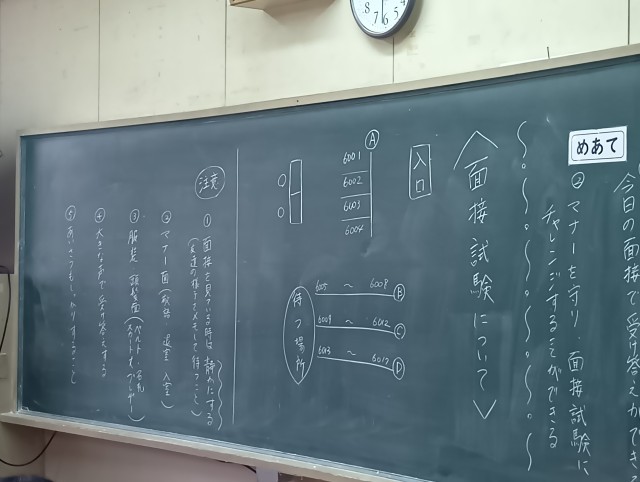 めあて
今日の面接で受け答えができる
② マナーを守り、面接試験に
チャレンジすることができる
〈面接試験について〉
入口
A
6001
6002
6003
6004
6005 ～ 6008 B
6009 ～ 6012 C
6013 ～ 6017 D
待つ場所
注意
① 面接を見ている時は静かにする
(友達の様子をメモして待つこと)
② マナー面(歓談・退室・入室)
③ 服装・頭髪面(ベルト・名札
④ 大きな声で受け答えする
⑤ あいさつもしっかりすること